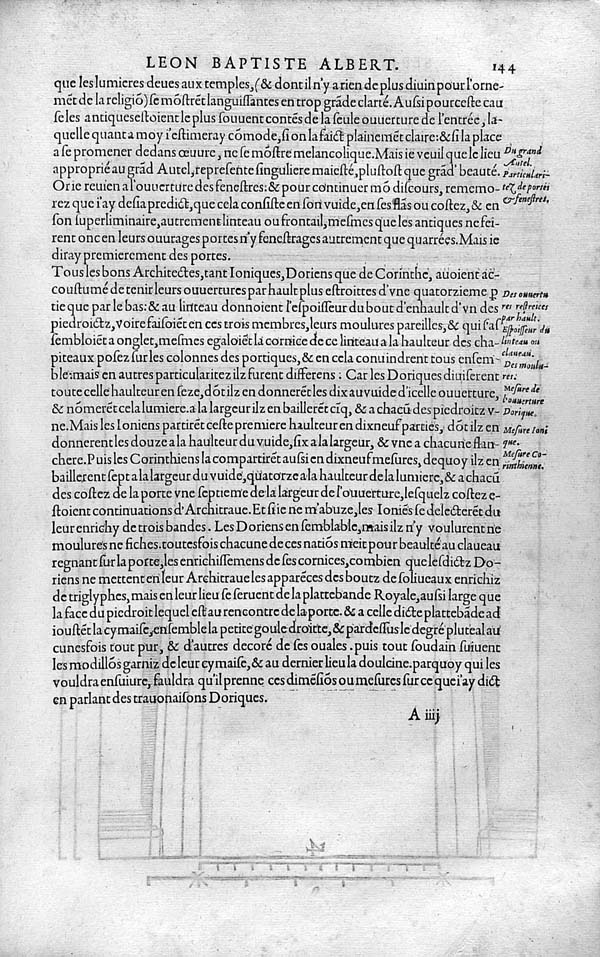 LEON BAPTISTE ALBERT. 144
que les lumieres deues aux temples, (& dont il n'y a rien de plus diuin pour l'orne-
mẽt de la religiõ) se mõstrẽt languissantes en trop grãde clarté. Aussi pour ceste cau
se les antiques estoient le plus souuent contẽs de la seule ouuerture de l'entrée, la-
quelle quant a moy i'estimeray cõmode, si on la faict plainemẽt claire: & si la place
a se promener dedans œuure, ne se mõstre melancolique. Mais ie veuil que le lieu
approprié au grãd Autel, represente singuliere maiesté, plustost que grãd' beauté.
Or ie reuien a l'ouuerture des fenestres: & pour continuer mõ discours, rememo-
rez que i'ay desia predict, que cela consiste en son vuide, en ses flãs ou costez, & en
son superliminaire, autrement linteau ou frontail, mesmes que les antiques ne fei-
rent onc en leurs ouurages portes n'y fenestrages autrement que quarrées. Mais ie
diray premierement des portes.
Du grand
Autel.
Particulari-
tez de portes
& fenestres.
Tous les bons Architectes, tant Ioniques, Doriens que de Corinthe, auoient ac-
coustumé de tenir leurs ouuertures par hault plus estroittes d'vne quatorzieme p
tie que par le bas: & au linteau donnoient l'espoisseur du bout d'enhault d'vn des
piedroictz, voire faisoiẽt en ces trois membres, leurs moulures pareilles, & qui s'as
sembloiẽt a onglet, mesmes egaloiẽt la cornice de ce linteau a la haulteur des cha-
piteaux posez sur les colonnes des portiques, & en cela conuindrent tous ensem-
ble: mais en autres particularitez ilz furent differens: Car les Doriques diuiserent
toute celle haulteur en seze, dõt ilz en donnerẽt les dix au vuide d'icelle ouuerture,
& nõmerẽt cela lumiere. a la largeur ilz en baillerẽt cĩq, & a chacũ des piedroitz v-
ne. Mais les Ioniens partirẽt ceste premiere haulteur en dixneuf parties, dõt ilz en
donnerent les douze a la haulteur du vuide, six a la largeur, & vne a chacune flan-
chere. Puis les Corinthiens la compartirẽt aussi en dixneuf mesures, dequoy ilz en
baillerent sept a la largeur du vuide, quatorze a la haulteur de la lumiere, & a chacũ
des costez de la porte vne septieme de la largeur de l'ouuerture, lesquelz costez e-
stoient continuations d'Architraue. Et si ie ne m'abuze, les Ioniẽs se delecterẽt du
leur enrichy de trois bandes. Les Doriens en semblable, mais ilz n'y voulurent ne
moulures ne fiches. toutesfois chacune de ces natiõs meit pour beaulté au claueau
regnant sur la porte, les enrichissemens de ses cornices, combien que lesdictz Do-
riens ne mettent en leur Architraue les apparẽces des boutz de soliueaux enrichiz
de triglyphes, mais en leur lieu se seruent de la plattebande Royale, aussi large que
la face du piedroit lequel est au rencontre de la porte. & a celle dicte plattebãde ad
ioustẽt la cymaise, ensemble la petite goule droitte, & par dessus le degré pluteal au
cunesfois tout pur, & d'autres decoré de ses ouales. puis tout soudain suiuent
les modillõs garniz de leur cymaise, & au dernier lieu la doulcine. parquoy qui les
vouldra ensuiure, fauldra qu'il prenne ces dimẽsiõs ou mesures sur ce que i'ay dict
en parlant des trauonaisons Doriques.
Des ouuertu
res restreices
par hault.
Espoisseur du
linteau ou
claueau.
Des moulu-
res.
Mesure de
l'ouuerture
Dorique.
Mesure Ioni
que.
Mesure Co-
rinthienne.
A iiij